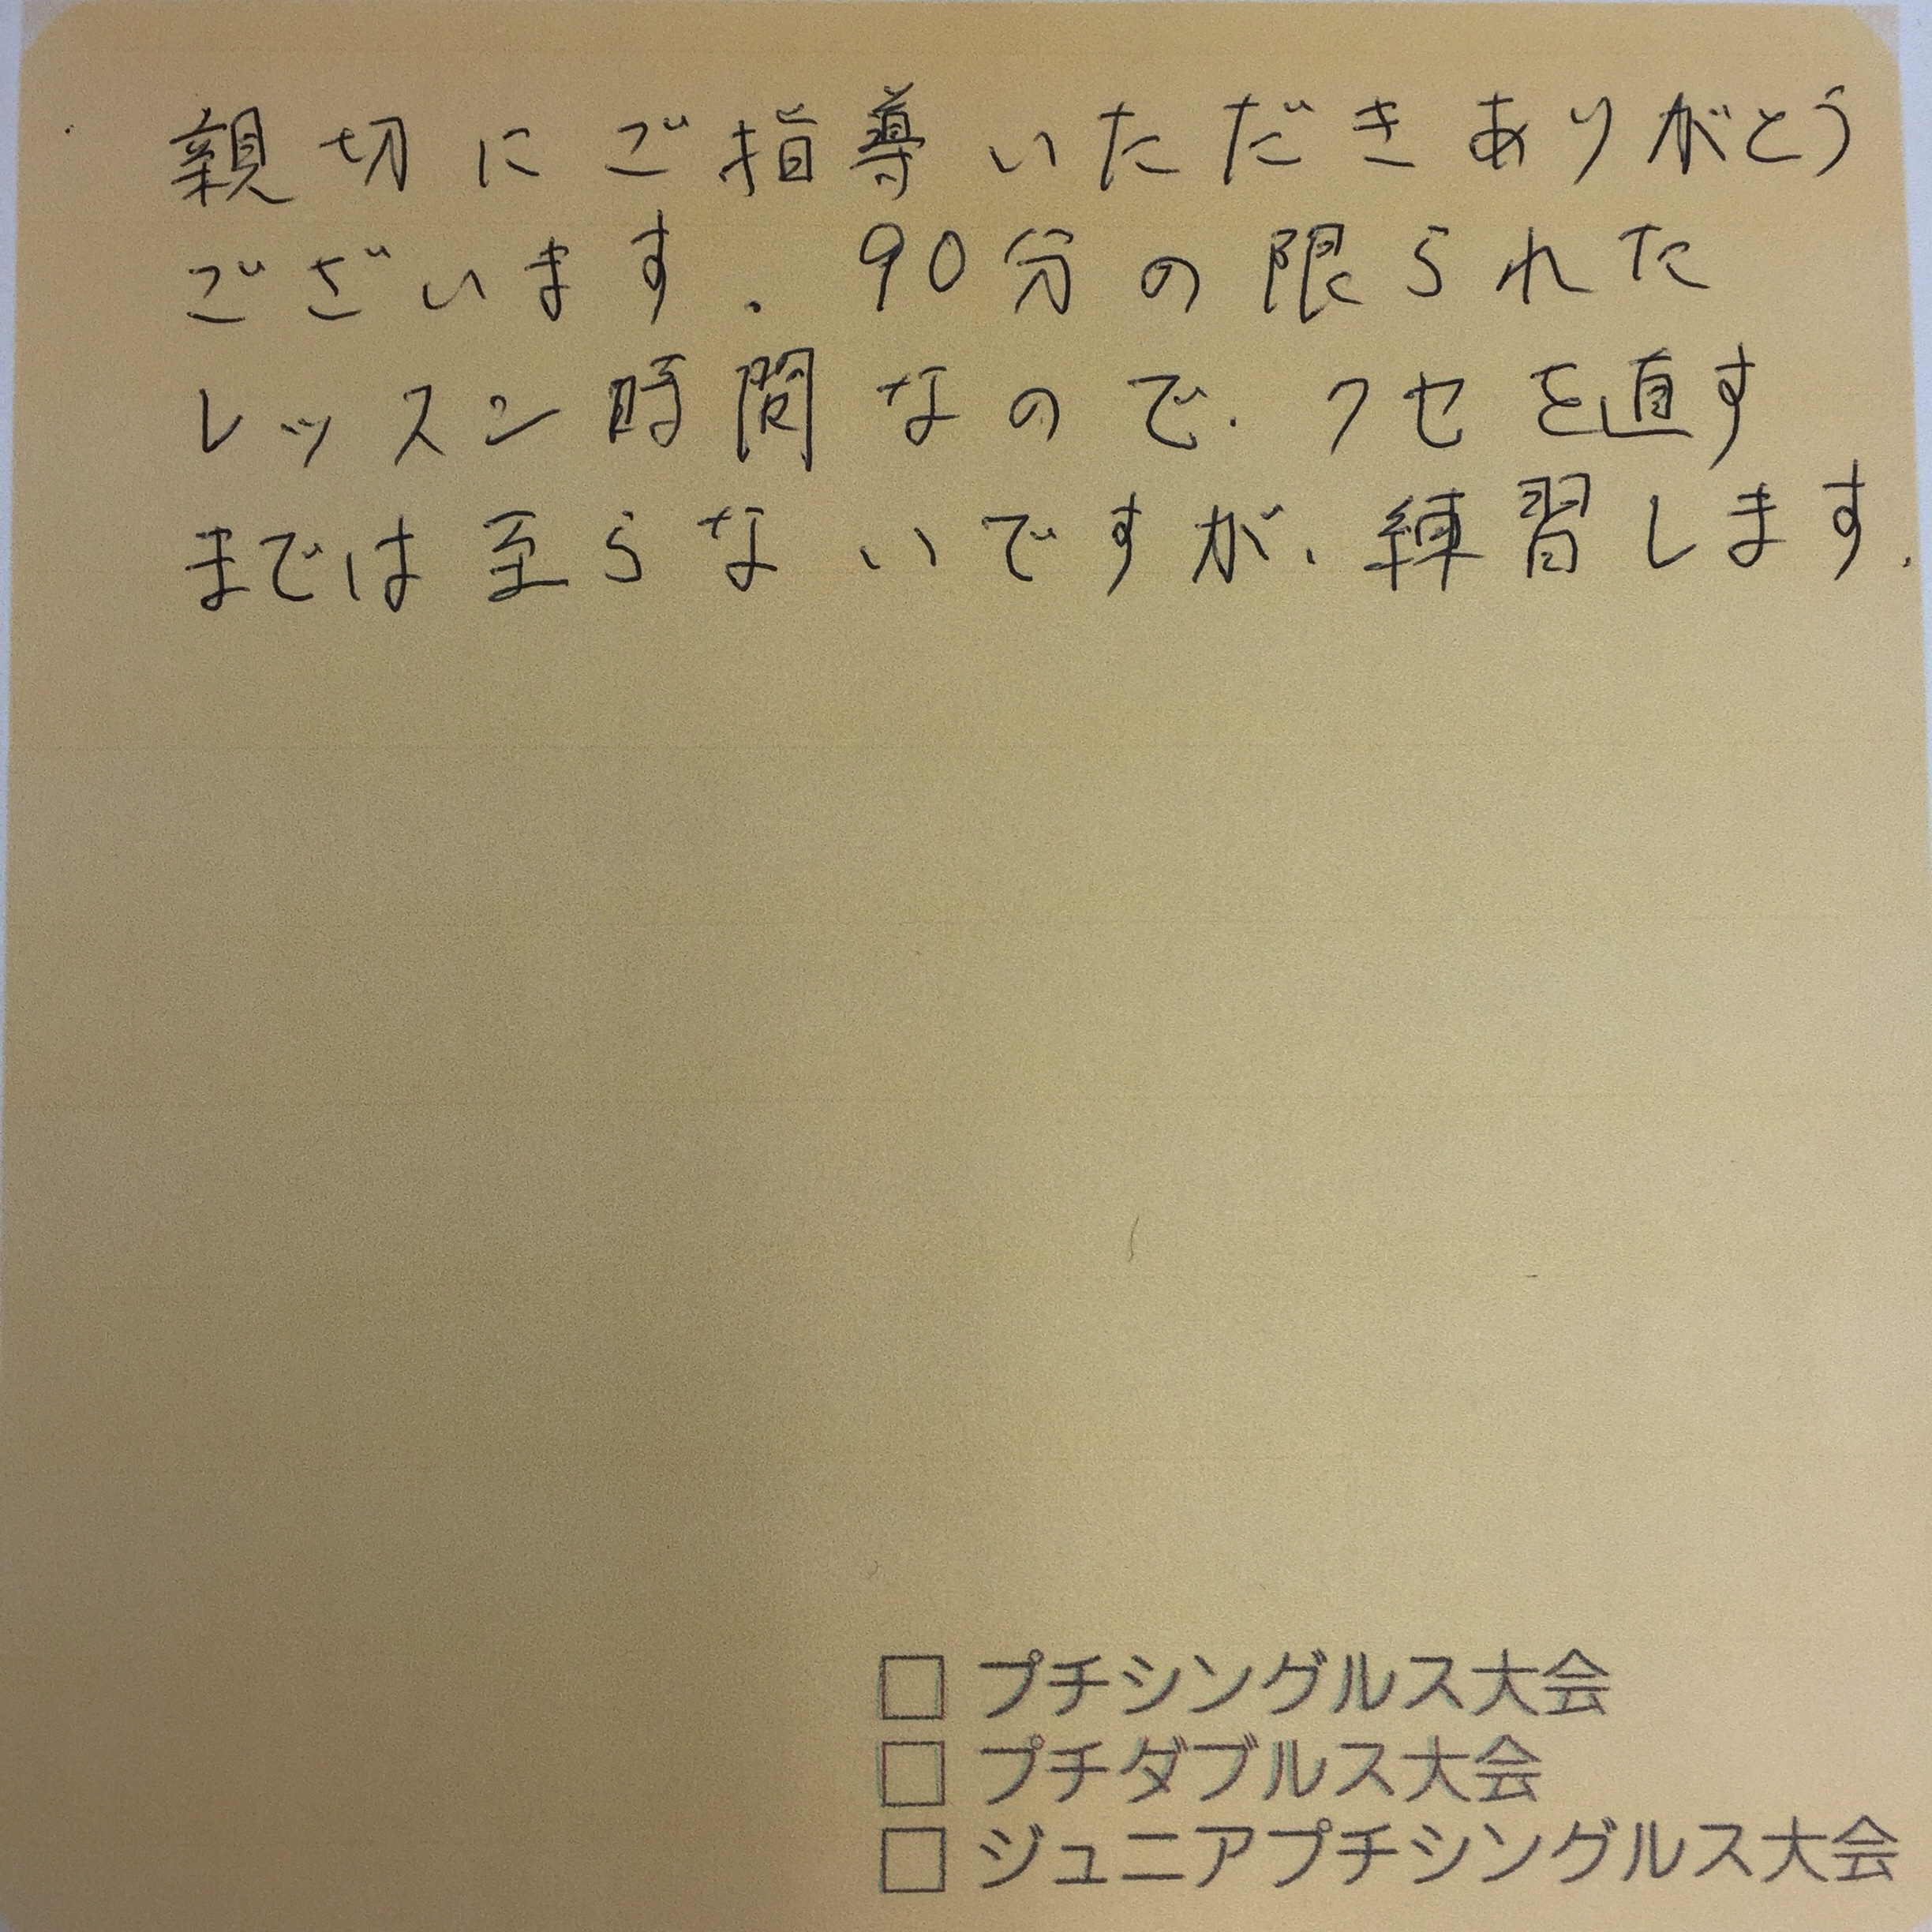 親切にご指導いただきありがとう
ございます。90分の限られた
レッスン時間なので、クセを直す
までは至らないですが、練習します。
□ プチシングルス大会
□ プチダブルス大会
□ ジュニアプチシングルス大会